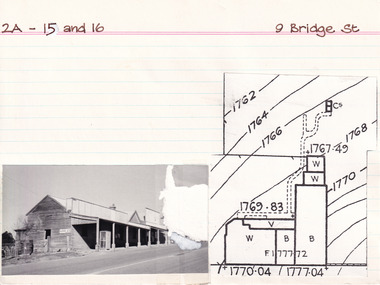 2A - 15 and 16
9 Bridge St
1762
1764
1766
Cs
1768
1767·49
W
W
1770
1769·83
V
W
B
B
F 1777·72
1770·04
1777·04